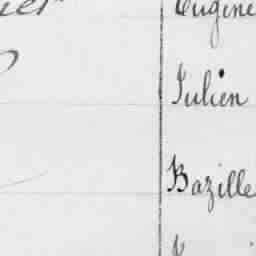 Eugène
Julien
Bazille